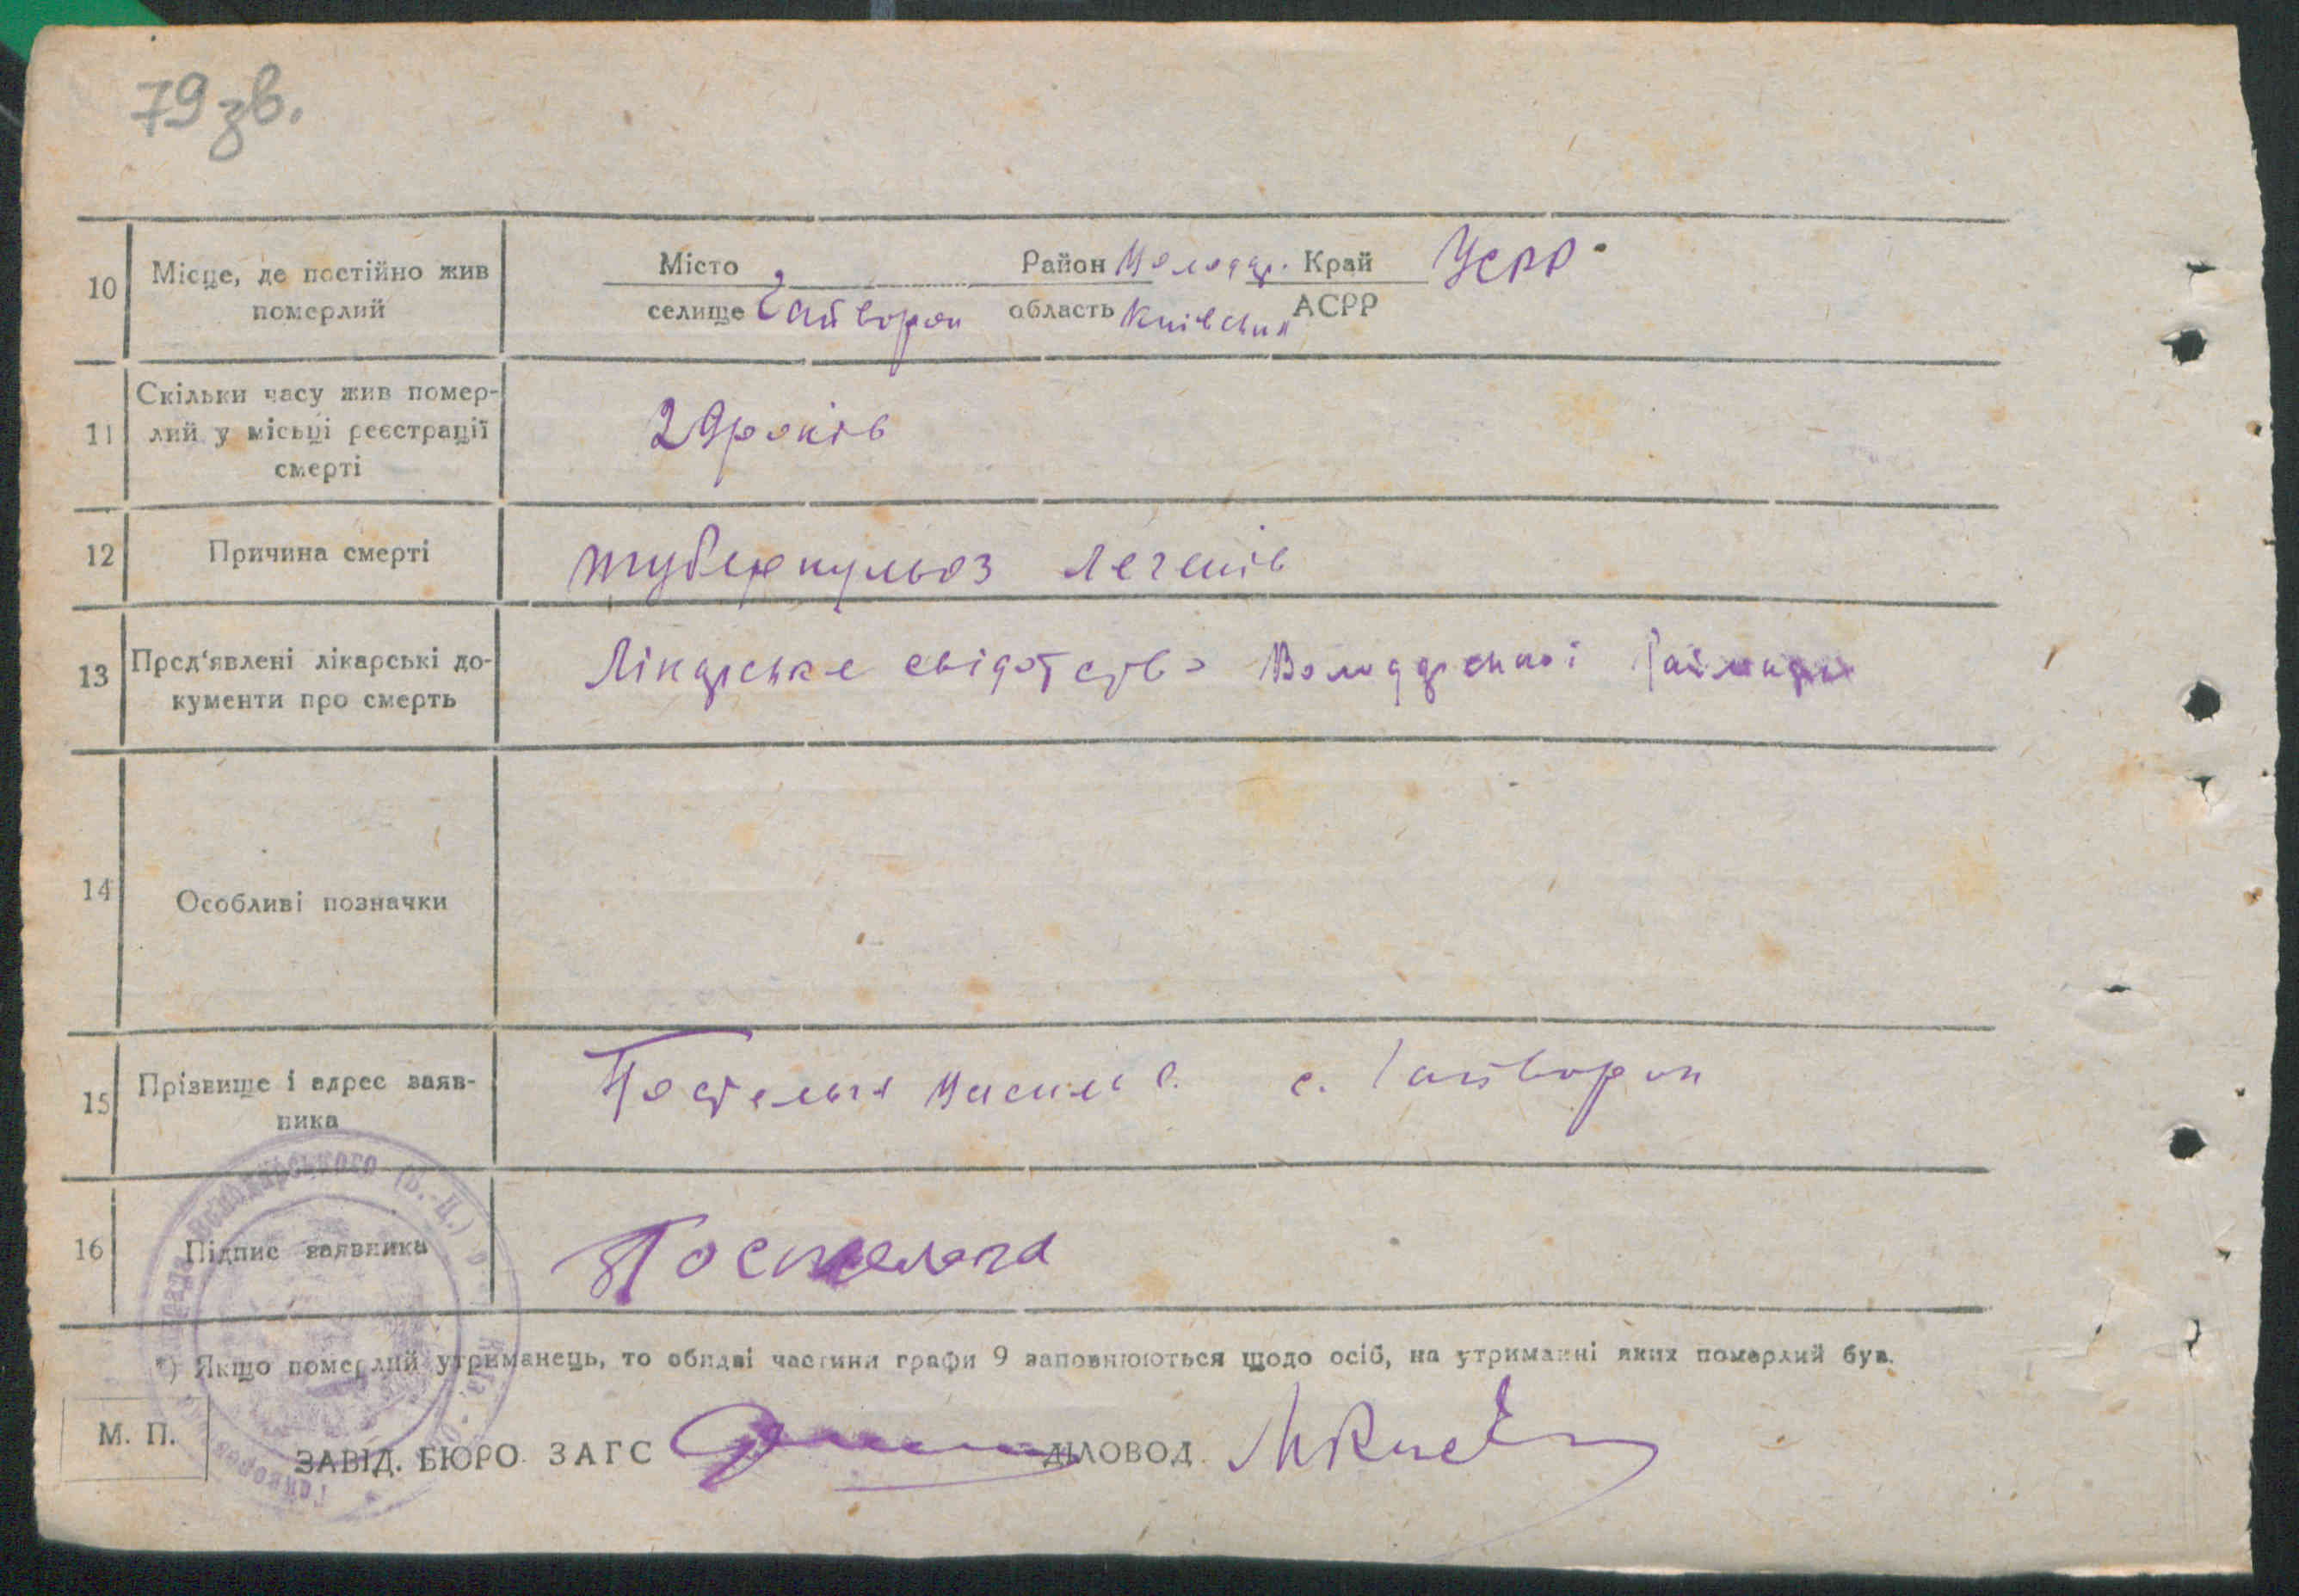 79 зв.
10 Місце, де постійно жив померлий
Місто Район Володар. Край УСРР
селище Гайворон область Київська АСРР
11 Скільки часу жив помер-
лий у місьці реєстрації
смерті
29 років
12 Причина смерті туберкульоз легенів
13 Пред'явлені лікарські до-
кументи про смерть
Лікарське свідотство Володарської
14 Особливі позначки
15 Прізвище і адрес заяв-
ника
с. Гайворон
16 Підпис заявника
*) Якщо померлий утриманець, то обидві частини графи 9 заповнюються щодо осіб, на утриманні яких померлий був.
М. П.
ЗАВІД. БЮРО ЗАГС ДІЛОВОД